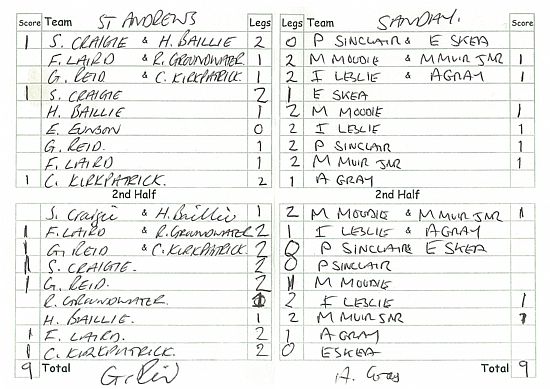 Score Team ST ANDREWS Legs Legs Team SANDAY. Score
1 S. CRAIGIE & H. BAILLIE 2 0 P SINCLAIR & E SKEA
F. LAIRD & R. GROUNDWATER 1 2 M MOODIE & M MUIR JNR 1
G. REID & C. KIRKPATRICK. 1 2 I LESLIE & A GRAY 1
1 S. CRAIGIE 2 1 E SKEA
H. BAILLIE 1 2 M MOODIE 1
E. EUNSON 0 2 I LESLIE 1
G. REID. 1 2 P SINCLAIR 1
F. LAIRD 1 2 M MUIR JNR 1
1 C. KIRKPATRICK. 2 1 A GRAY
2nd Half 2nd Half
S. Craigie & H. Baillie 1 2 M MOUDIE & M MUIR JNR 1
1 F. LAIRD & R. GROUNDWATER 2 1 I LESLIE & A GRAY
1 G. REID & C. KIRKPATRICK. 2 0 P SINCLAIR & E SKEA
1 S. CRAIGIE. 2 0 P SINCLAIR
1 G. REID. 2 1 M MOODIE
R. GROUNDWATER. 1 2 I LESLIE 1
H. BAILLIE. 1 2 M MUIR JNR 1
1 F. LAIRD. 2 1 A GRAY
1 C. KIRKPATRICK. 2 0 E SKEA
9 Total G. Reid A. Gray Total 9